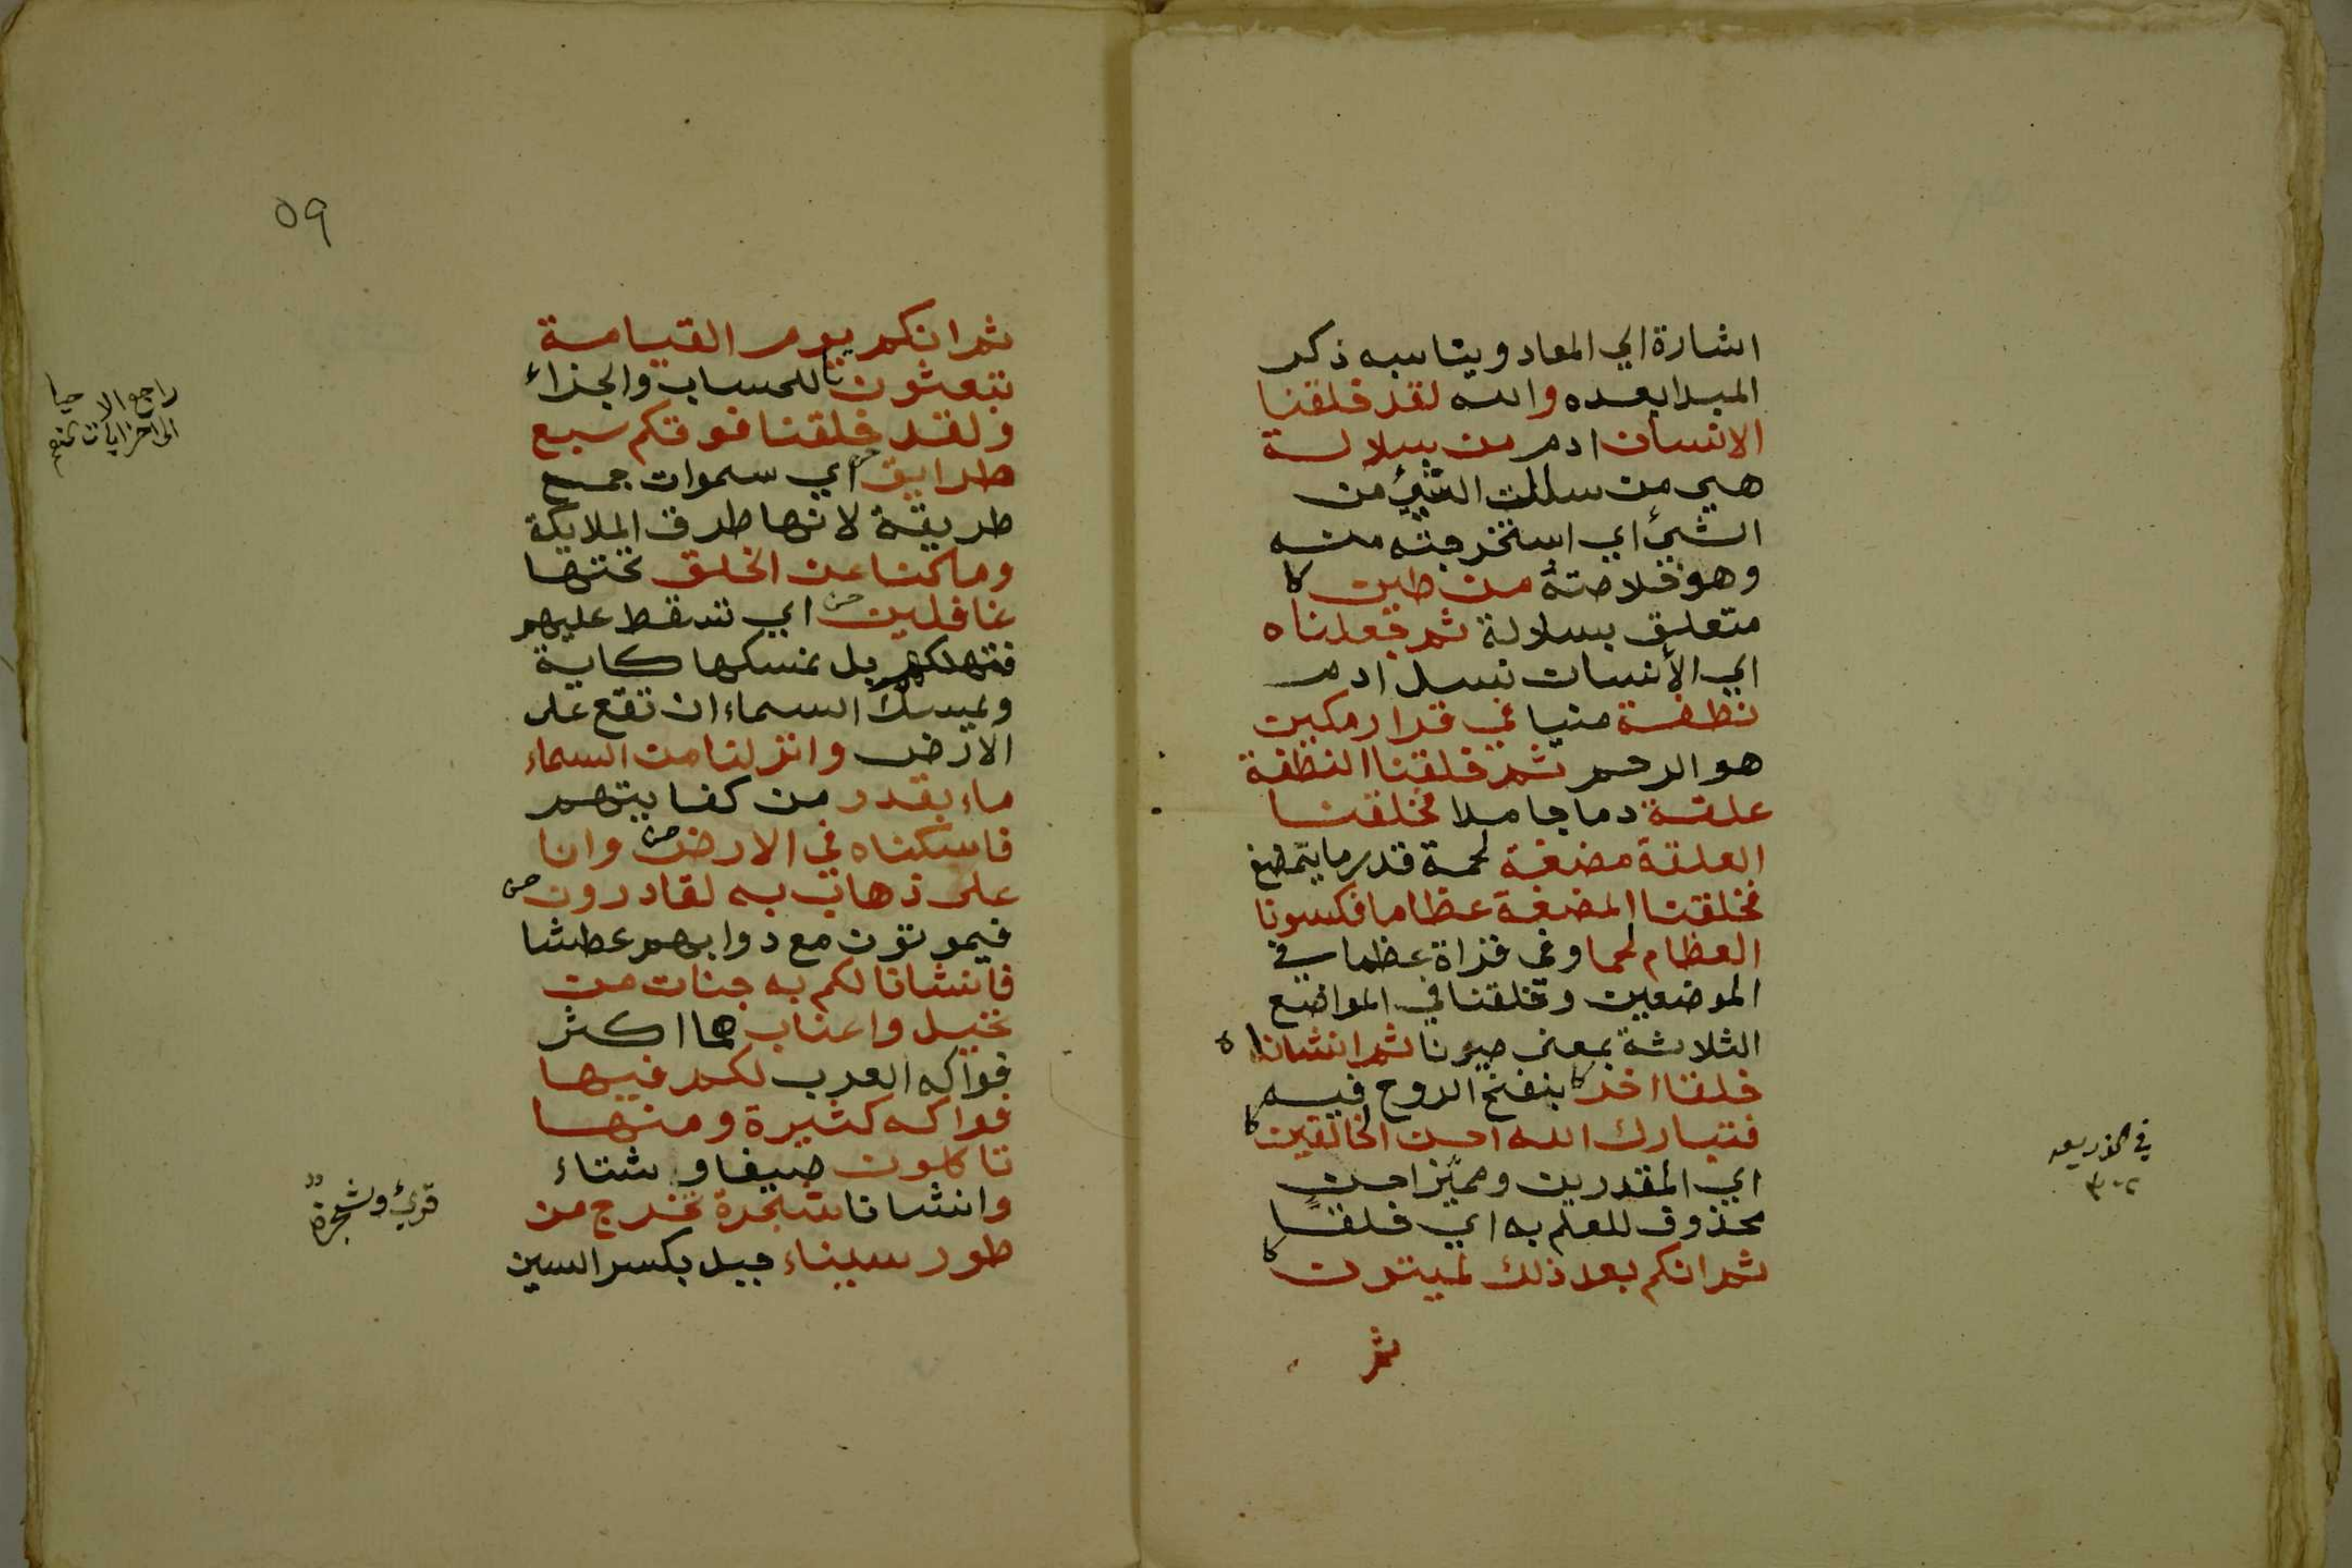 اشارة الي المعاد ويناسبه ذكر
المبدا بعده والله لقد خلقنا
الانسان ادم من سلالة
هي من سللت الشيئ من
الشيئ اي استخرجته منه
وهو خلاصته من طين
متعلق بسلالة ثم جعلناه
اي الأنسان نسل ادم
نطفة منيا في قرار مكين
هو الرحم ثم خلقنا النطفة
علقة دما جامدا فخلقنا
العلقة مضغة لحمة قدر ما يتمضغ
فخلقنا المضغة عظاما فكسونا
العظام لحما وفي قراة عظما في
الموضعين وخلقنا في المواضع
الثلاثة بمعنى صيرنا ثم انشاناه
خلقا اخر بنفخ الروح فيه
فتبارك الله احسن الخالقين
اي المقدرين ومميّز احسن
محذوف للعلم به اي خلقًا
ثم انكم بعد ذلك لميتون
ثم
٥٩
ثم انكم يوم القيامة
تبعثون للحساب والجزاء
ولقد خلقنا فوقكم سبع
طرايق اي سموات جمع
طريقة لانها طرق الملايكة
وما كنا عن الخلق تحتها
غافلين اي تسقط عليهم
فتهلكهم بل نمسكها كاية
ويمسك السماء ان تقع على
الارض وانزلنا من السماء
ماء بقدر من كفايتهم
فاسكناه في الارض وانا
على ذهاب به لقادرون
فيموتون مع دوابهم عطشا
فانشانا لكم به جنات من
نخيل واعناب هما اكثر
فواكه العرب لكم فيها
فواكه كثيرة ومنها
تاكلون صيفا وشتاء
وانشانا شجرة تخرج من
طور سيناء جبل بكسر السين
قرئ وشجرةٌ